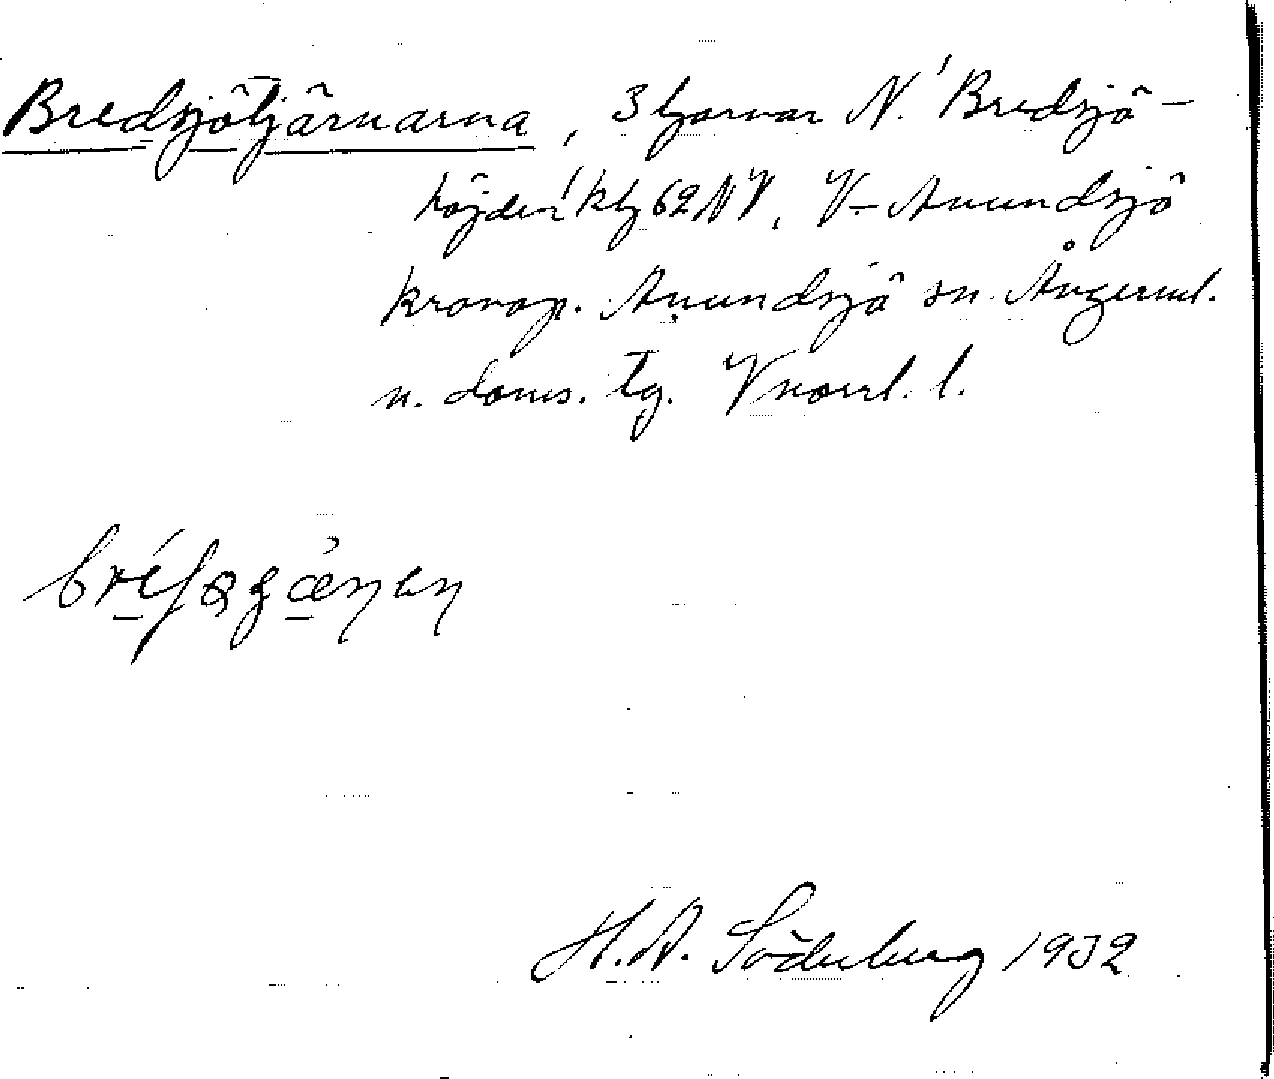 Bredsjötjärnarna, 3 tjärnar N. 'Bredsjö-
höjden' kbg 62 NV, V-Anundsjö
kronop. Anundsjö sn. Ångerml.
n. doms. tg. Vnorrl. l.
H. A. Söderberg 1932